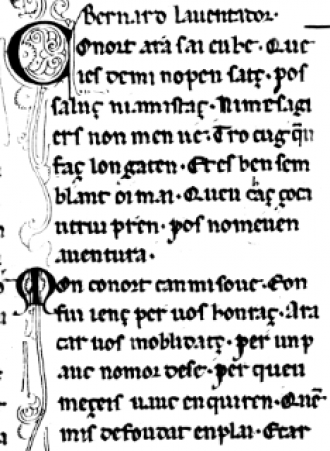 Bernard Iauentador.
Conort ara sai eu be. Que
ies de mi no pen satz. pos
salutz ni amistatz. Ni mesagi
ers non men ue. Tro cug qu
fatz lon gaten. Et es ben sem
blant oi mai. Queu caſs ço ca
utrui pren. pos nomeuen
auentura.
Mon conort can mi soue. Con
fui ientz per uos honratz. Ara
car uos moblidatz. per un p
auc nomor dese. per queu
mezeis uauc enquiren. Que
mis defoudat en plai. Et ar